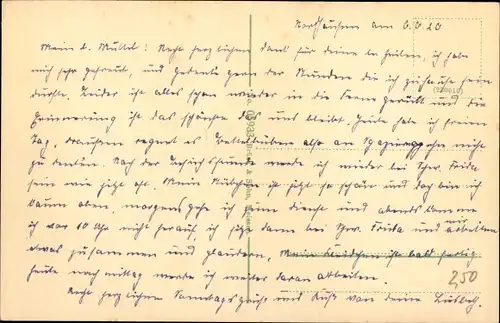 Nordhausen am 6.6.20
Mein l. Muttel! Recht herzlichen Dank für deine l. Zeilen, ich habe
mich sehr gefreut, und gedenke gern der Stunden die ich zuhause sein
durfte. Leider ist alles schon wieder in die Ferne gerückt und die
Erinnerung ist das schönste das uns bleibt. Heute habe ich freien
Tag, draußen regnet es also an Spazierengehn nicht
zu denken. Nach der werde ich wieder bei Schw. Frida
sein wie jetzt oft. Mein Stübchen ist jetzt so schön und doch bin ich
kaum oben, morgens gehe ich zum Dienst und abends komme
ich vor 10 Uhr nicht herauf, ich sitze dann bei Schw. Frida und wir arbeiten
etwas zusammen und plaudern. Mein ist bald fertig
heute nach mittag werde ich weiter daran arbeiten.
Recht herzlichen Sonntagsgruß und Kuß von deine Lisbeth.
250